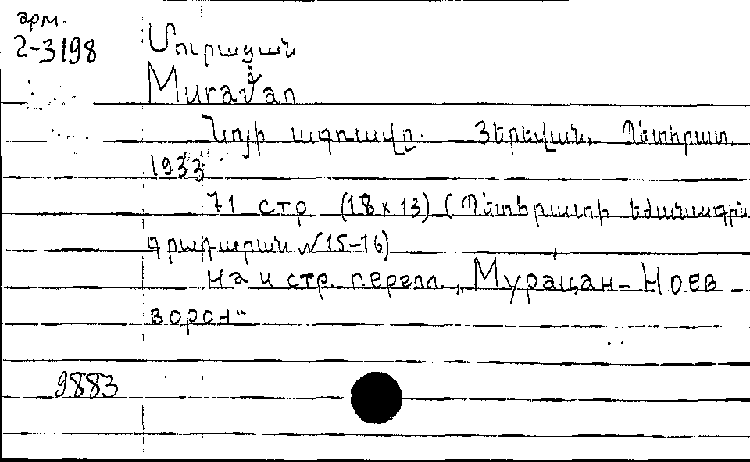 арм.
2-3198
Մուրացան
Muratan
Նոյի ագռավը. Յերեվան, Պետհրատ,
1933
71 стр (18 x 13) (Պետհրատի եժանագին
գրադարան N 15-16)
на и стр. перепл. „Мурацан - Ноев
ворон"
9883